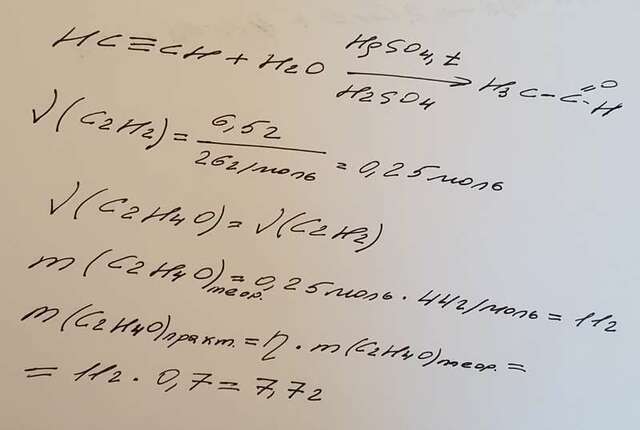 HC≡CH + H2O HgSO4, t H2SO4 → H3C-C=O-H
√(C2H2) = 6,5г / 26г/моль = 0,25 моль
√(C2H4O) = √(C2H2)
m(C2H4O)теор. = 0,25 моль · 44г/моль = 11г
m(C2H4O)практ. = η · m(C2H4O)теор. =
= 11г · 0,7 = 7,7г